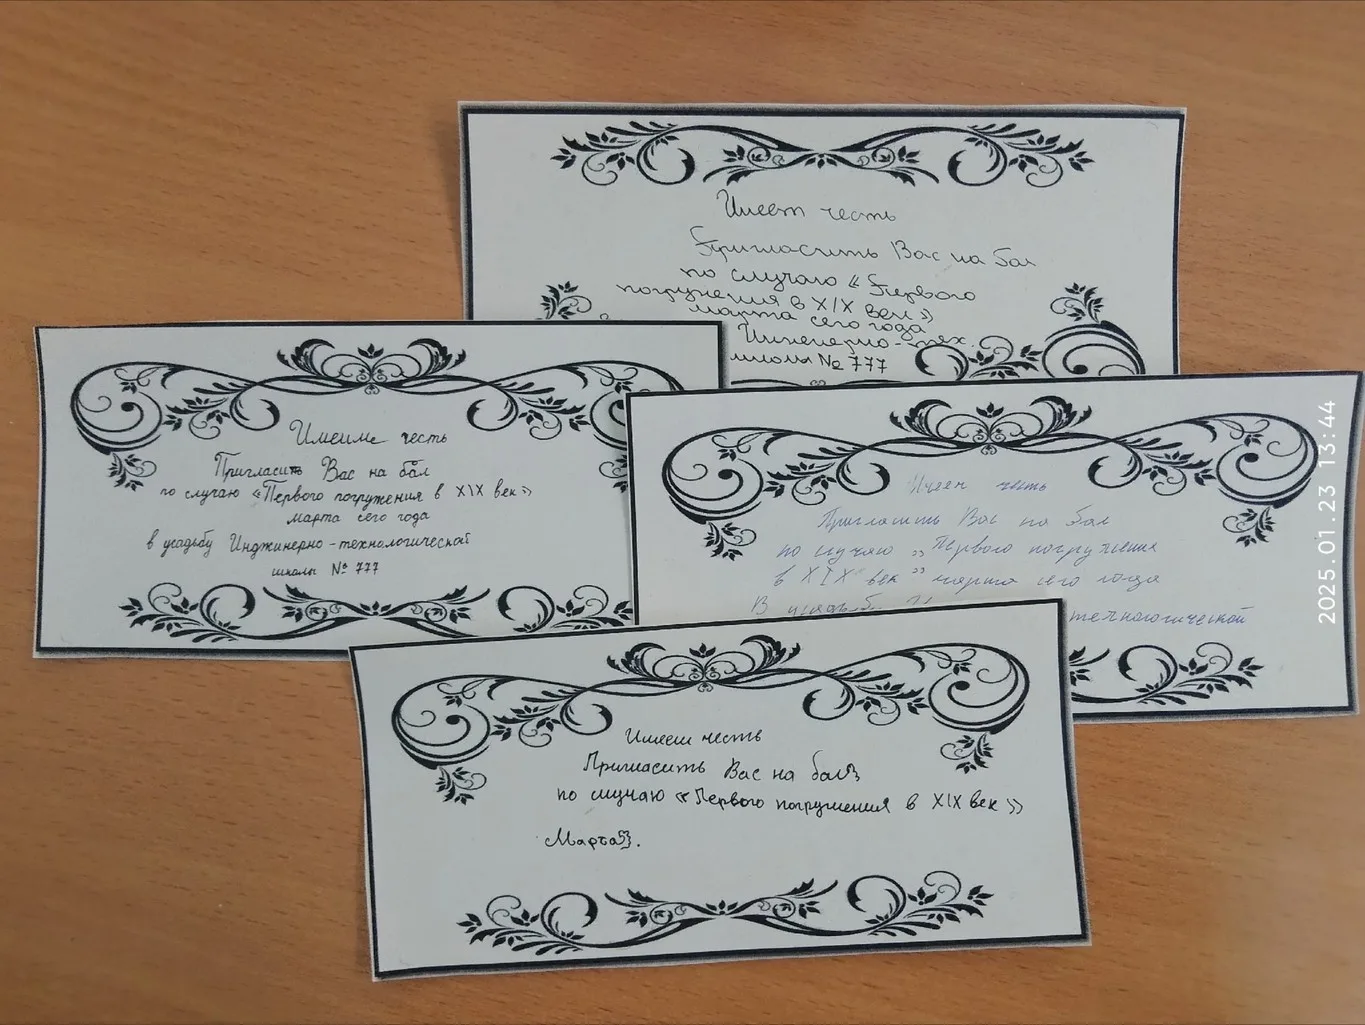 Имеет честь
Пригласить Вас на бал
по случаю «Первого
погружения в XIX век»
марта сего года
Инженерно-тех.
школы № 777
Имеиме честь
Пригласить Вас на бал
по случаю «Первого погружения в XIX век»
марта сего года
в усадьбу Инджинерно-технологической
школы № 777
Имеем честь
Пригласить Вас на бал
по случаю „Первого погружения
в XIX век” марта сего года
В технологической
Имееш честь
Пригласить Вас на бал
по случаю «Первого погружения в XIX век»
Марта
2025.01.23 13:44